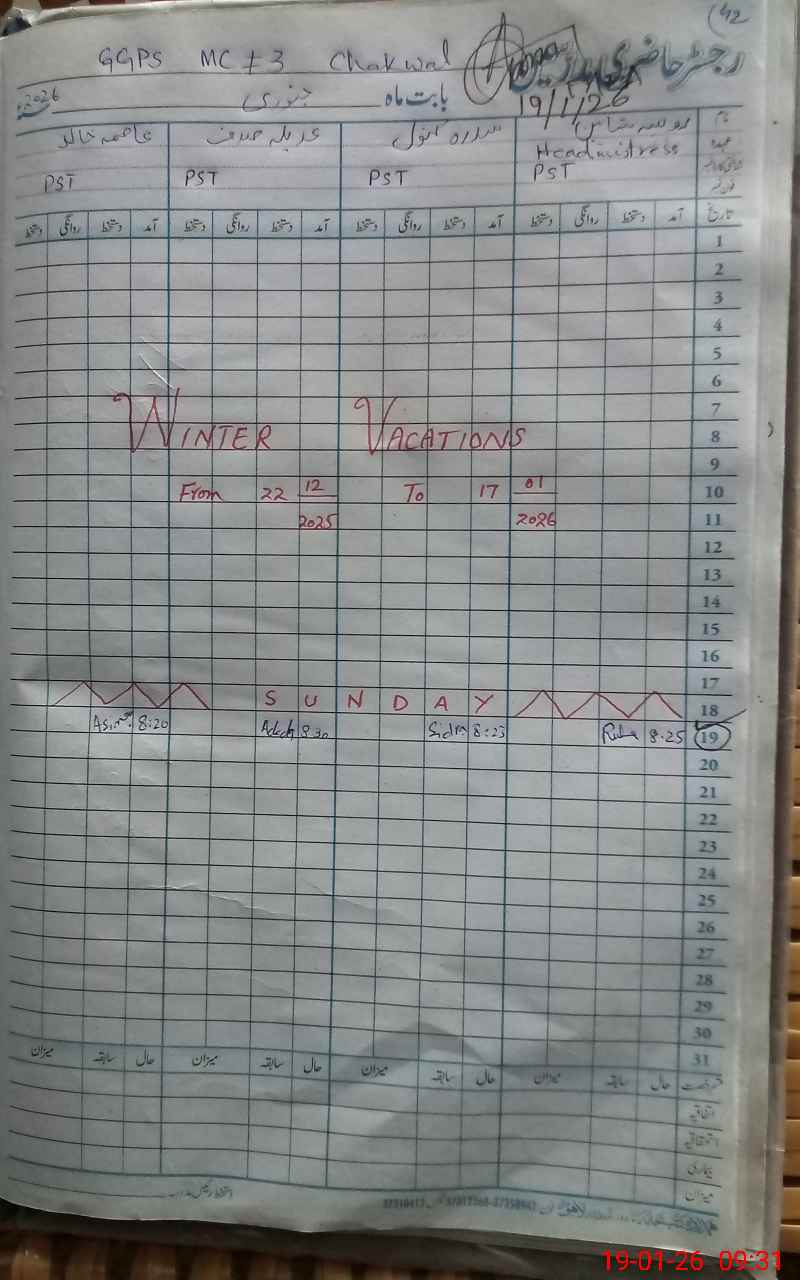 42
GGPS MC # 3 Chakwal
رجسٹر حاضری مدرسین
19/1/26
بابت ماہ جنوری 2026ء
نام
سدرہ کنول
عاصمہ خالد
عہدہ
Headmistress
PST PST PST PST
تاریخ آمد دستخط روانگی دستخط آمد دستخط روانگی دستخط آمد دستخط روانگی دستخط آمد دستخط روانگی دستخط
1
2
3
4
5
6
7
WINTER VACATIONS
8
9
From 22 12 2025 To 17 01 2026
10
11
12
13
14
15
16
17
SUNDAY
18
Asima 8:20 8:30 Sidra 8:23 8:25 19
20
21
22
23
24
25
26
27
28
29
30
31
حال سابقہ میزان حال سابقہ میزان حال سابقہ میزان حال سابقہ میزان
اتفاقیہ
استحقاقیہ
بیماری
میزان
19-01-26 09:31